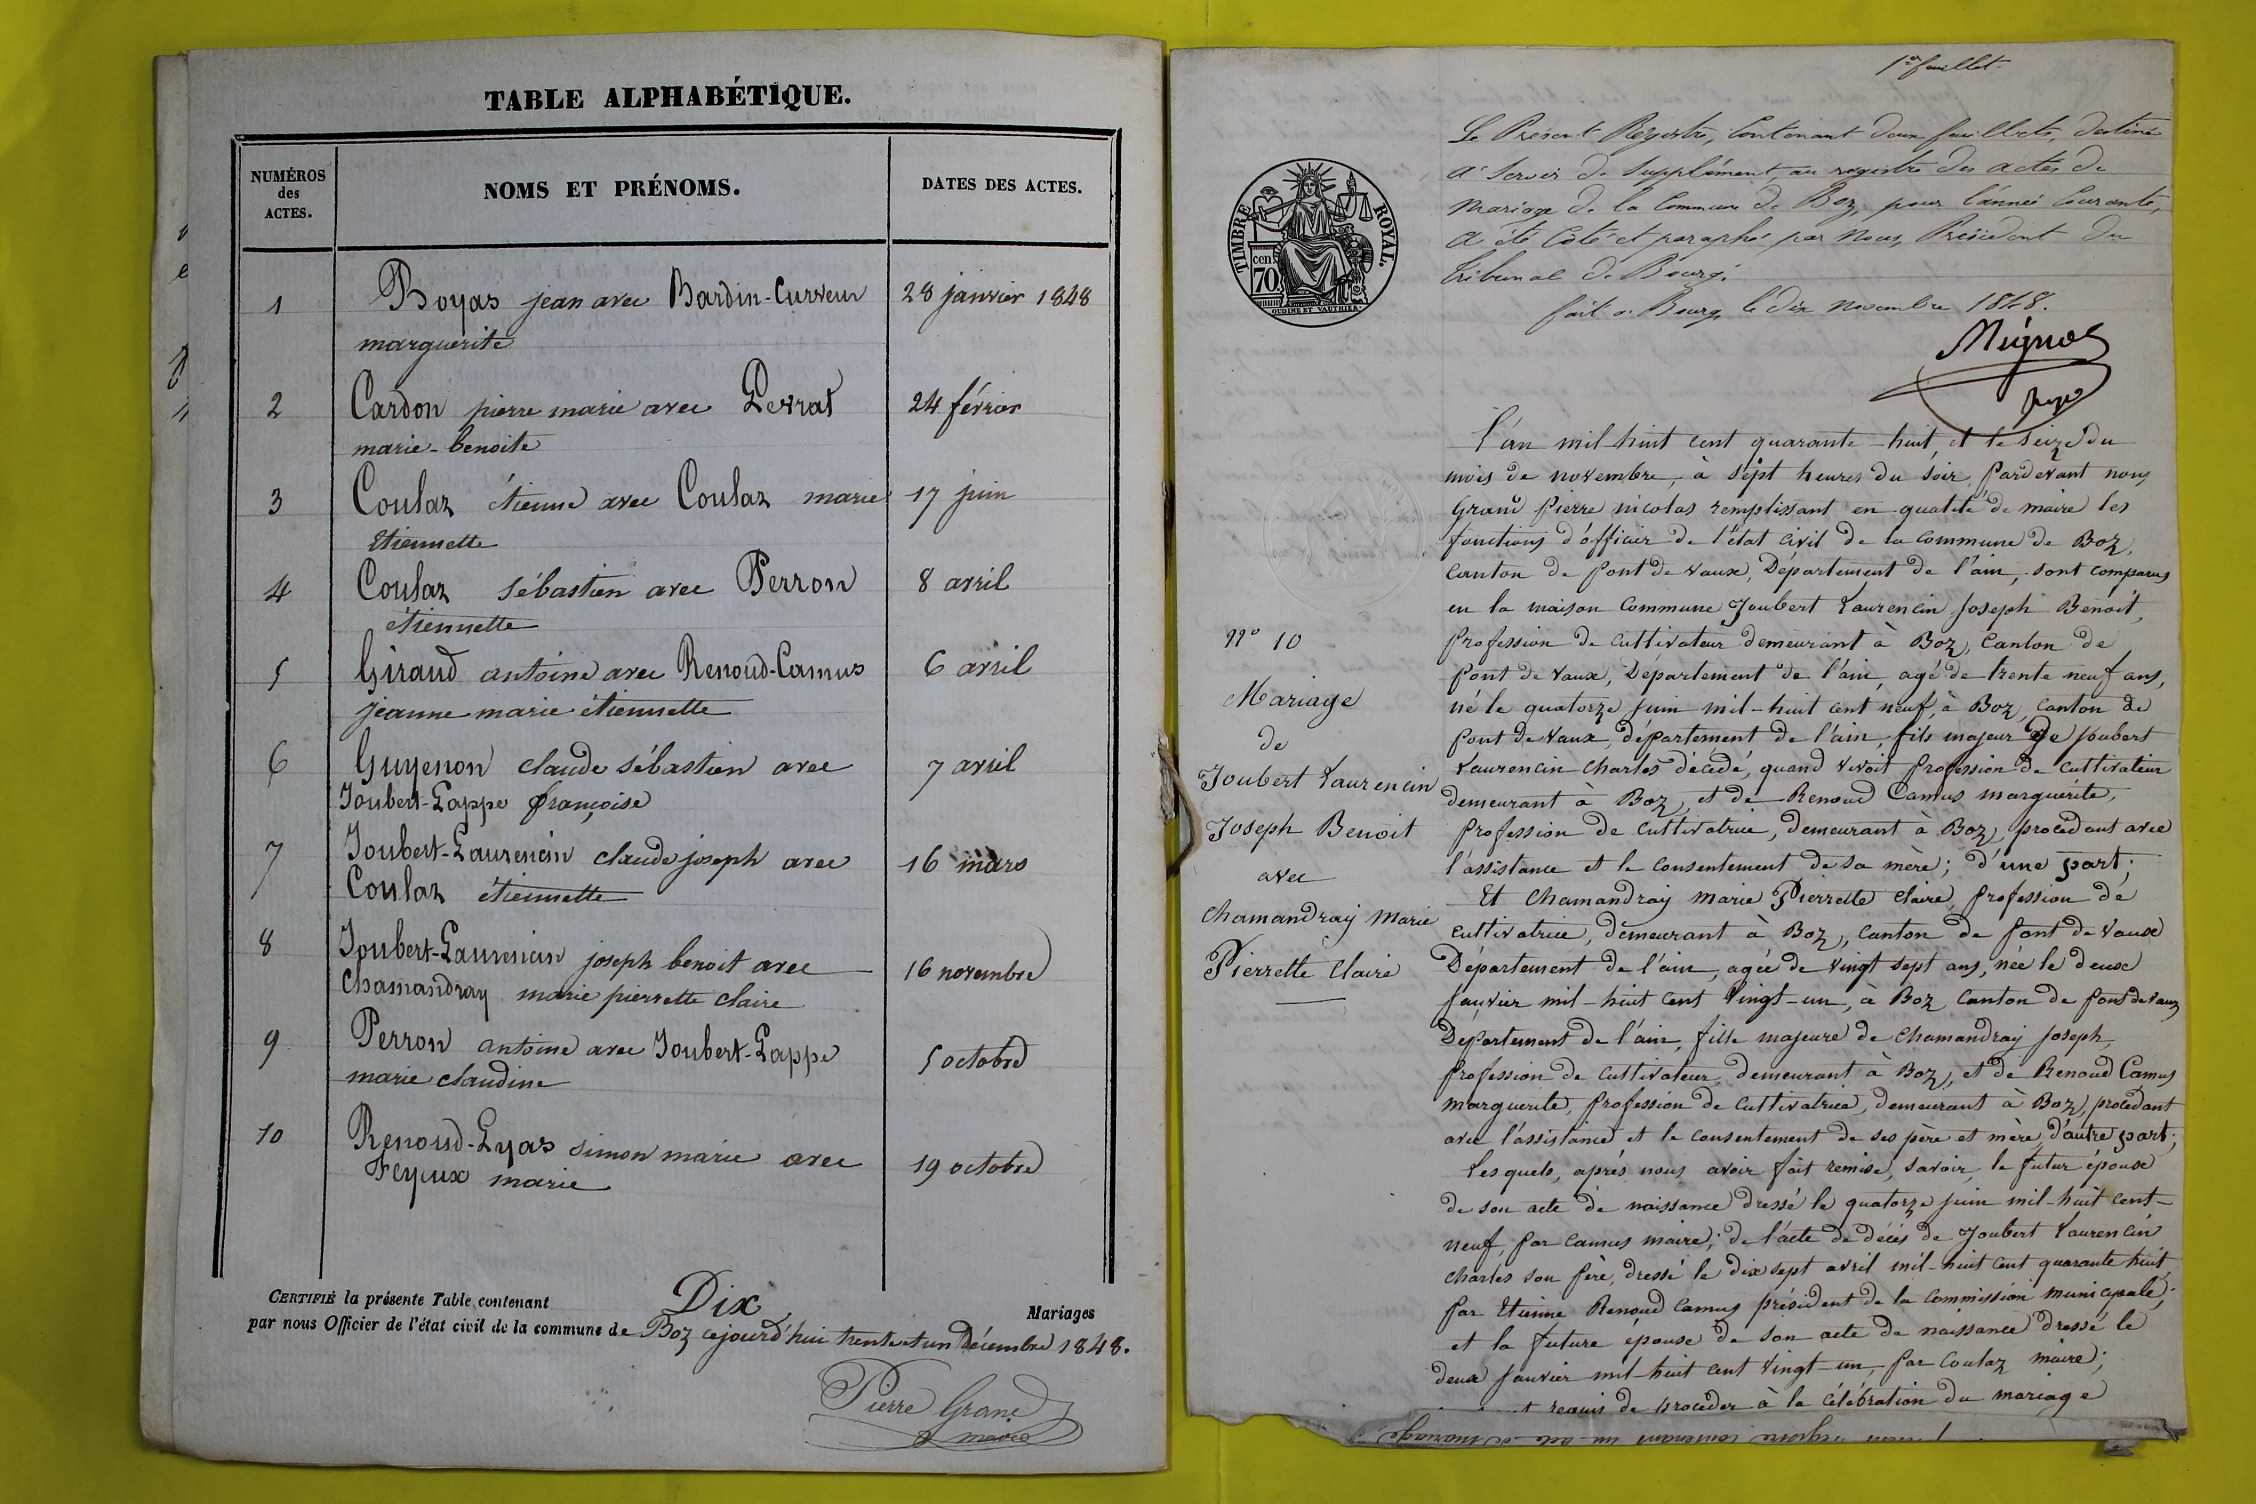 TABLE ALPHABÉTIQUE.
NUMÉROS
des
ACTES.
NOMS ET PRÉNOMS.
DATES DES ACTES.
1 Boyas jean avec Bardin-Curveur 28 janvier 1848
marguerite
2 Cardon pierre marie avec Levrat 24 février
marie-benoite
3 Coulaz étienne avec Coulaz marie 17 juin
Etiennette
4 Coulaz sébastien avec Perron 8 avril
étiennette
5 Giraud antoine avec Renoud-Camus 6 avril
jeanne marie étiennette
6 Guyenon claude sébastien avec 7 avril
Joubert-Lappe françoise
7 Joubert-Laurencin claude joseph avec 16 mars
Coulaz étiennette
8 Joubert-Laurencin joseph benoit avec 16 novembre
Chamandray marie pierrette claire
9 Perron antoine avec Joubert-Lappe 5 octobre
marie claudine
10 Renoud-Lyas simon marie avec 19 octobre
Feyeux marie
CERTIFIÉ la présente Table contenant Dix Mariages
par nous Officier de l'état civil de la commune de Boz cejourd'hui trente et un Décembre 1848.
Pierre Grand
maire
1er feuillet
Le Présent Registre, Contenant deux feuillets, destiné
a Servir de Supplément au registre des actes de
mariage de la Commune de Boz, pour l'année Courante,
a été Coté et paraphé par Nous, Président du
tribunal de Bourg.
fait a Bourg, le dix novembre 1848.
TIMBRE ROYAL.
cen
70
OUDINÉ ET VAUTHIER.
L'an mil-huit cent quarante-huit, et le seize du
mois de novembre, à sept heures du soir, Pardevant nous
Grand Pierre nicolas remplissant en qualité de maire les
fonctions d'officier de l'état civil de la commune de Boz,
Canton de Pont de vaux, Département de l'ain, sont comparus
en la maison Commune Joubert Laurencin Joseph Benoit,
profession de cultivateur demeurant à Boz, Canton de
Pont de vaux, Département de l'ain, agé de trente neuf ans,
né le quatorze juin mil-huit cent neuf, à Boz, Canton de
Pont de vaux, département de l'ain, fils majeur de Joubert
Laurencin Charles décédé, quand vivoit profession de cultivateur
demeurant à Boz, et de Renoud Camus marguerite,
profession de Cultivatrice, demeurant à Boz, procédent avec
l'assistance et le consentement de sa mère; d'une part;
Et Chamandray marie Pierrette claire, profession de
cultivatrice, demeurant à Boz, canton de Pont de vaux
Département de l'ain, agée de vingt sept ans, née le deux
Janvier mil-huit cent vingt-un, à Boz Canton de pont de vaux
Département de l'ain, fille majeure de Chamandray Joseph,
profession de cultivateur demeurant à Boz, et de Renoud Camus
marguerite, profession de Cultivatrice, demeurant à Boz, procédant
avec l'assistance et le consentement de ses père et mère d'autre part;
Lesquels, après nous avoir fait remise, savoir, le futur époux
de son acte de naissance dressé le quatorze juin mil-huit cent-
neuf, par Camus maire; de l'acte de décès de Joubert Laurencin
charles son père, dressé le dix sept avril mil-huit cent quarante huit
par Etienne Renoud Camus président de la Commission municipale;
et la future épouse de son acte de naissance dressé le
deux Janvier mil-huit cent vingt-un, par Coulaz maire;
requis de procéder à la célébration du mariage
N° 10
Mariage
de
Joubert Laurencin
Joseph Benoit
avec
Chamandray Marie
Pierrette Claire